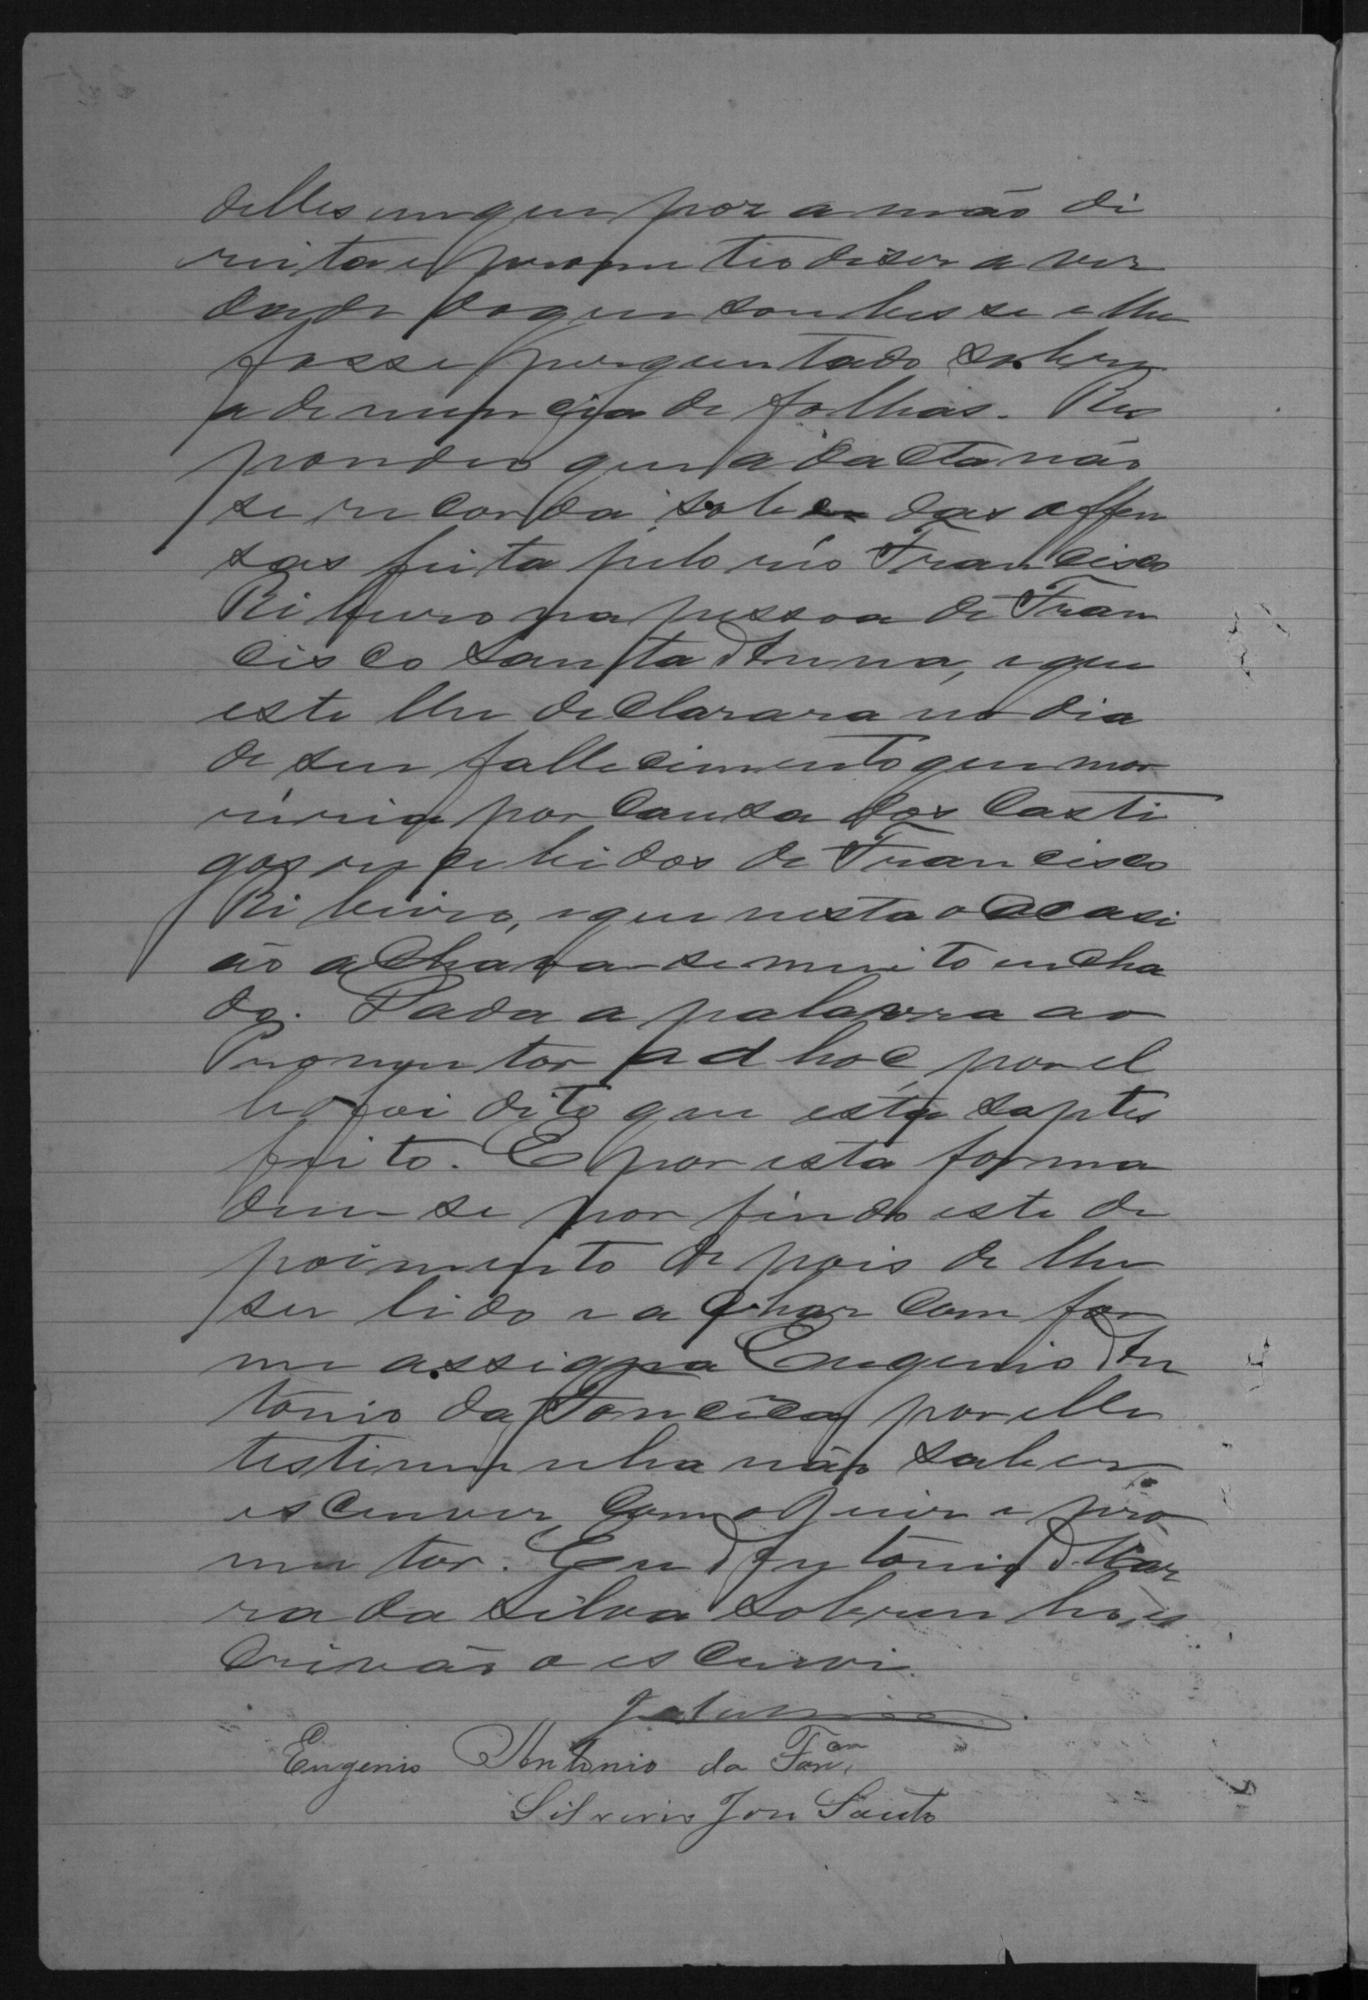 delles em que poz a mão di
reita e prometteo diser a ver
dade do que soubesse e lhe
fosse perguntado sobre
a denuncia de folhas. Res
pondeo que a dacta não
se recorda sobre das offen
sas feita pelo réo Francisco
Ribeiro na pessoa de Fran
cisco Santa Anna, e que
este lhe declarara no dia
de seu fallecimento que mor
reria por causa dos Casti
gos recebidos de Francisco
Ribeiro, e que nesta o acasi
ão achava-se muito encha
do. Dada a palavra ao
Promutor ad hoc, por el
le foi dito que esta saptes
feito. E por esta forma
deu se por findo este de
poimento depois de lhe
ser lido e a char com for
me assigna Eugenio An
tonio da Fonceca por elle
testimunha não saber
escrever, com o Juiz e pro
mutor. Eu Antonio Mar
ra da Silva Sobrinho, es
crivão o escrevi.
Eugenio Antonio da Fonca
Silverio Jose Santo